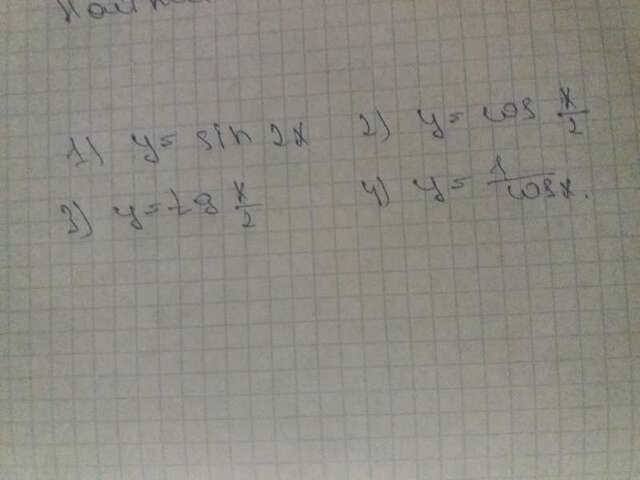 1) y = sin 2x 2) y = cos x/2
3) y = tg x/2 4) y = 1/cos x.